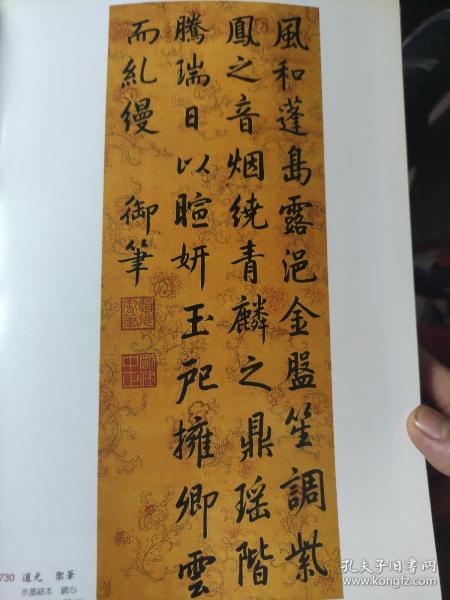 風和蓬島露浥金盤笙調紫
鳳之音烟繞青麟之鼎瑶階
騰瑞日以暄妍玉戺擁卿雲
而糺縵 御筆
730 道光 禦筆
水墨絹本 鏡心
孔夫子旧书网